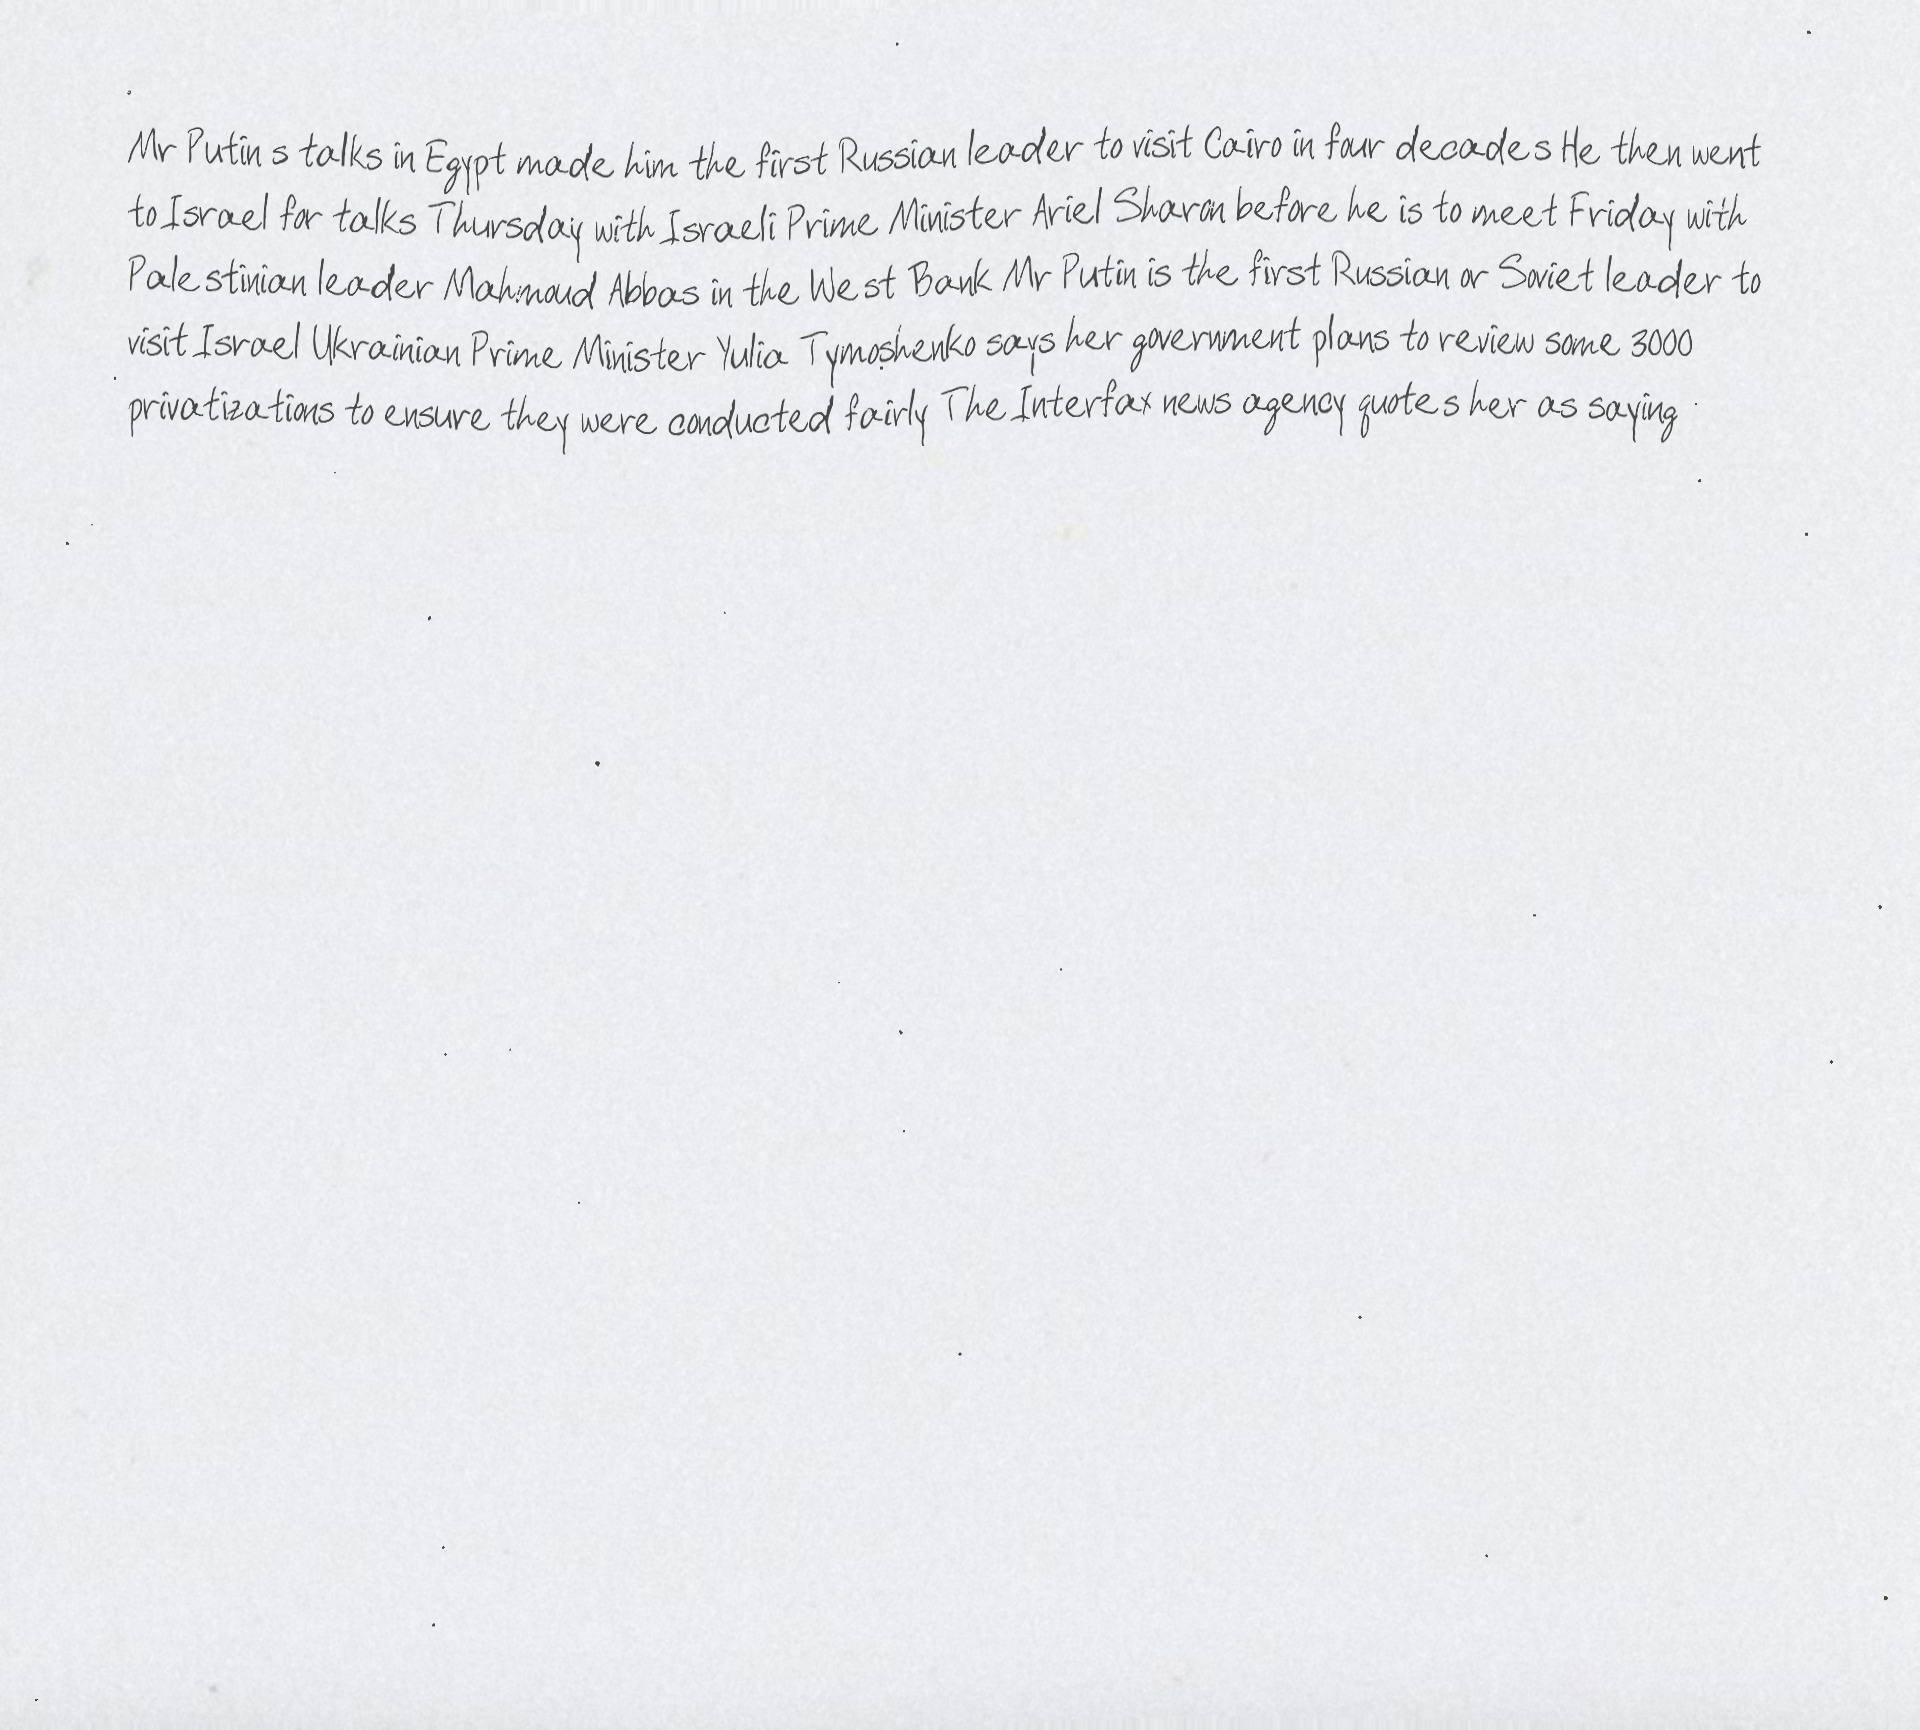 Mr Putin s talks in Egypt made him the first Russian leader to visit Cairo in four decades He then went
to Israel for talks Thursday with Israeli Prime Minister Ariel Sharon before he is to meet Friday with
Palestinian leader Mahmoud Abbas in the West Bank Mr Putin is the first Russian or Soviet leader to
visit Israel Ukrainian Prime Minister Yulia Tymoshenko says her government plans to review some 3000
privatizations to ensure they were conducted fairly The Interfax news agency quotes her as saying